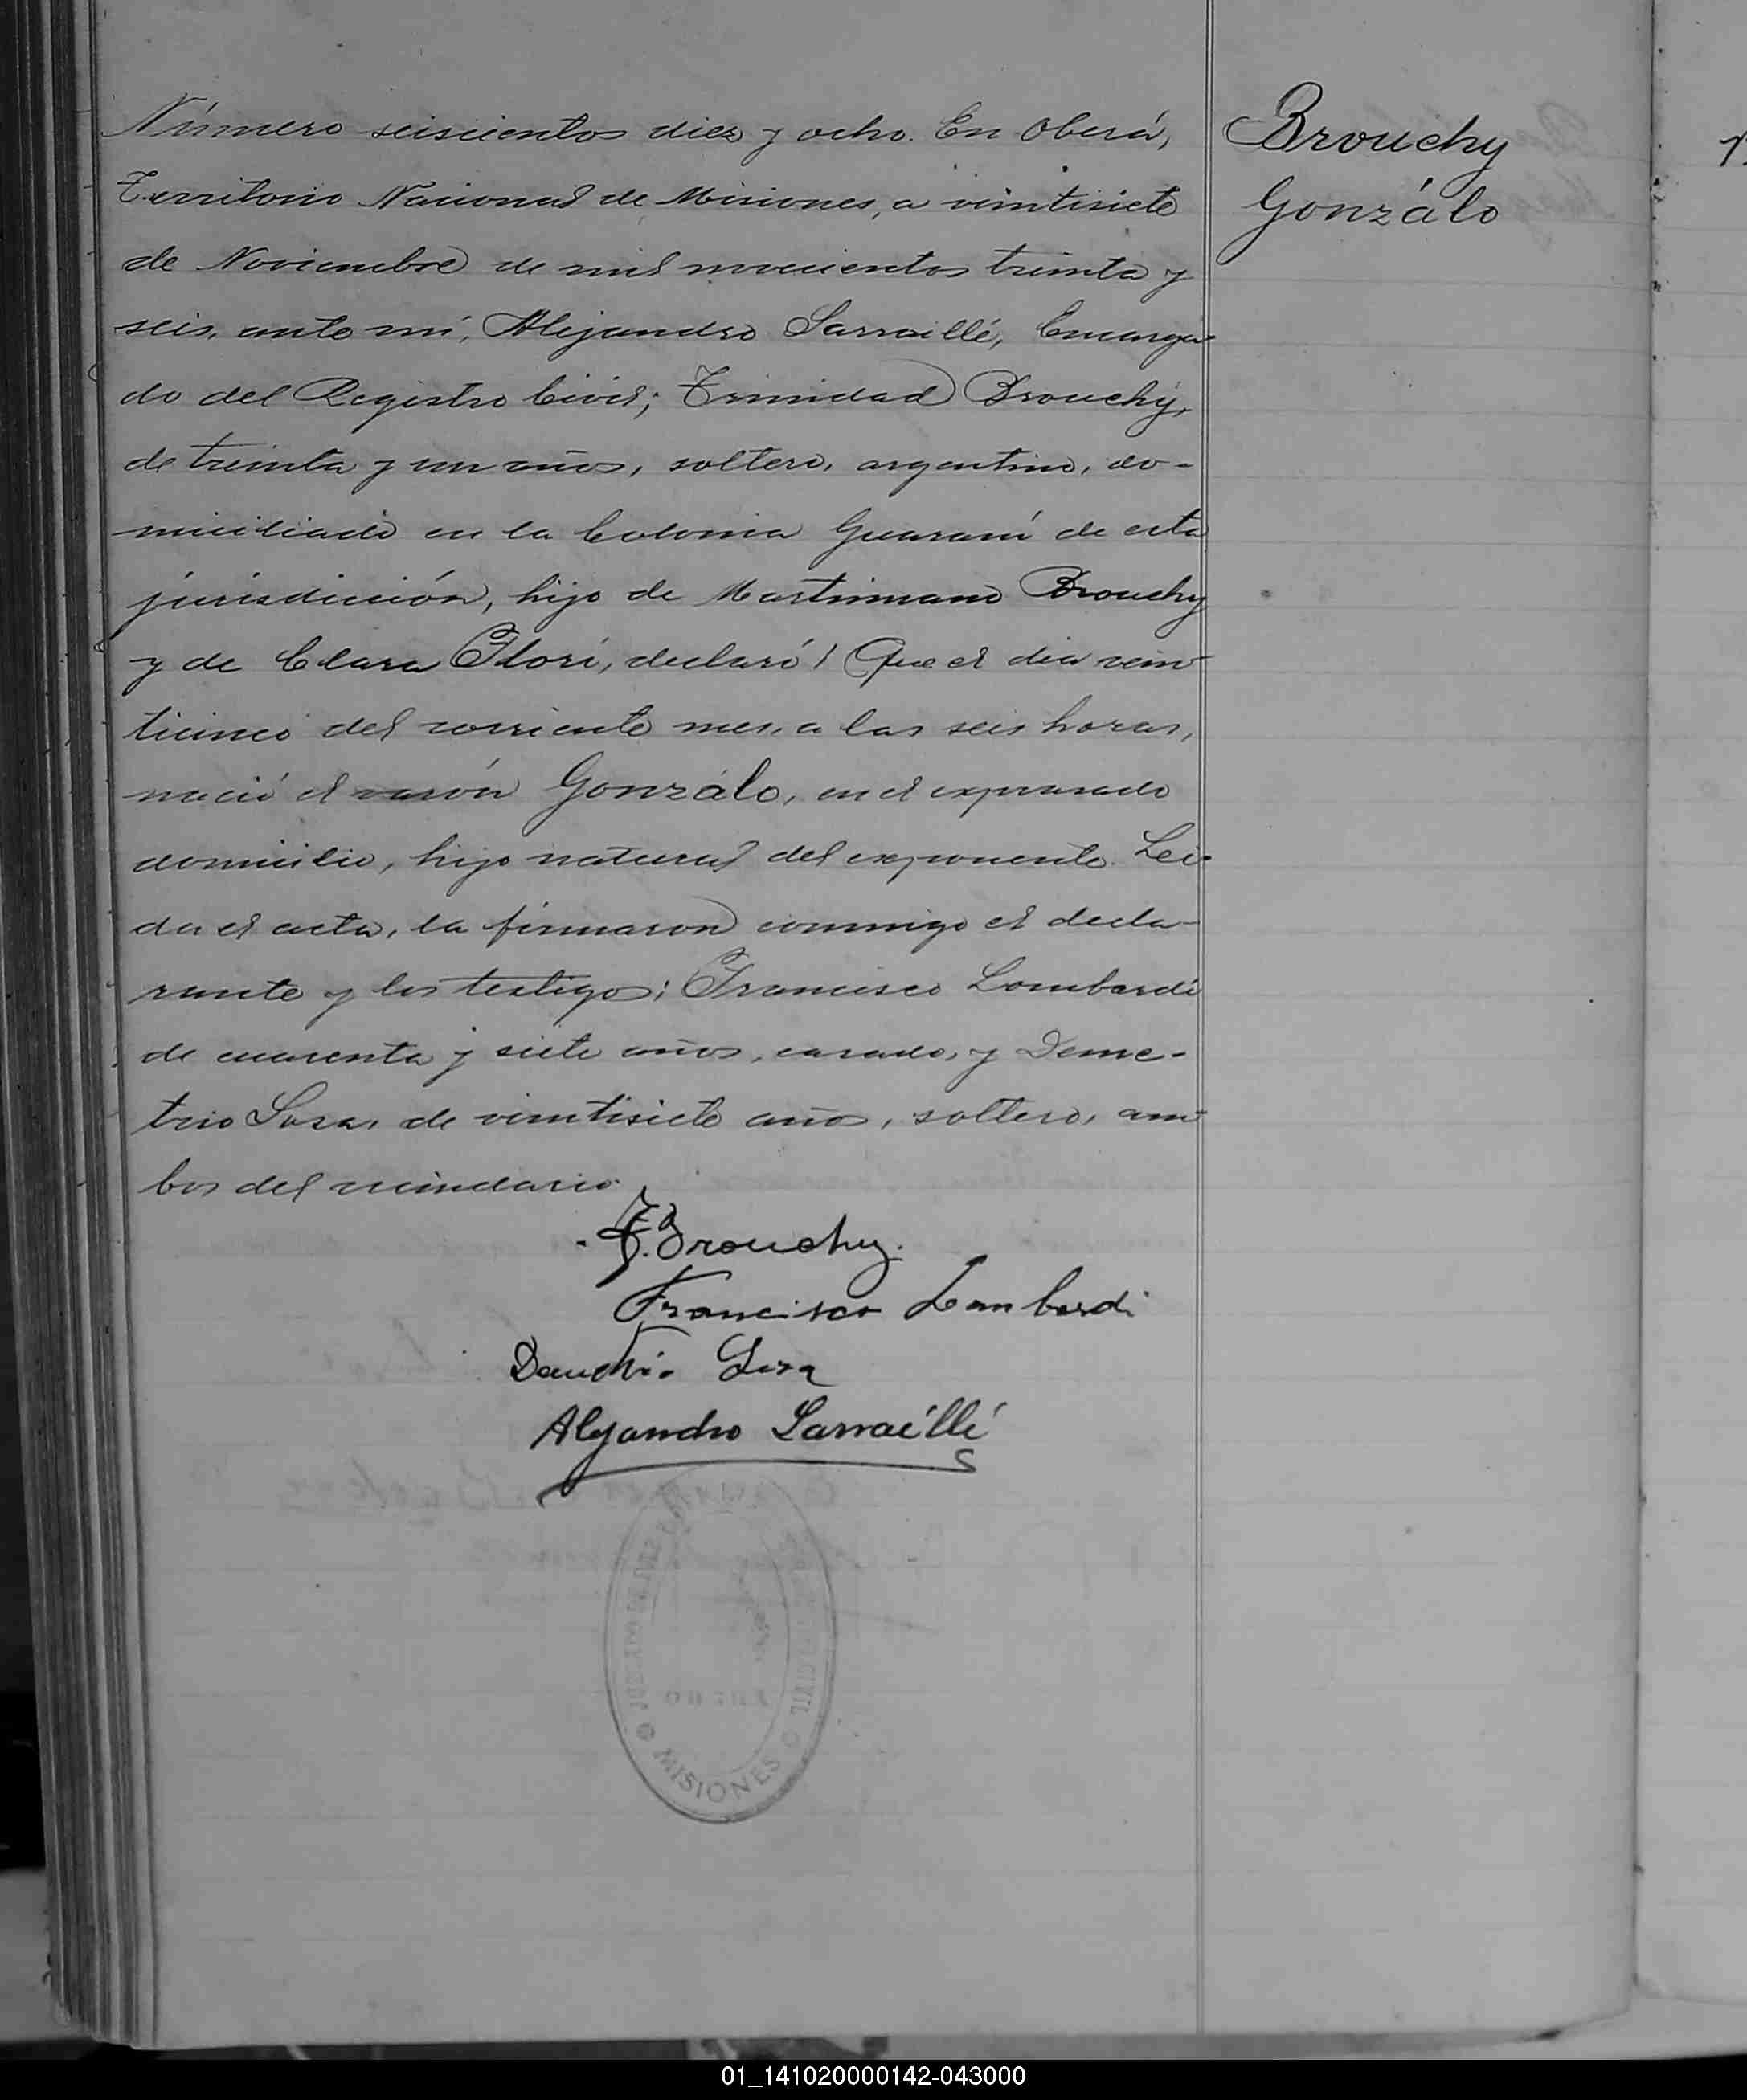 Número seiscientos diez y ocho. En Oberá,
Territorio Nacional de Misiones, a vintisiete
de Noviembre de mil novecientos treinta y
seis, ante mí, Alejandro Sarraillé, Encarga-
do del Registro Civil; Trinidad Brouchy,
de treinta y un años, soltero, argentino, do-
miciliado en la Colonia Guaraní de esta
jurisdicción, hijo de Martiniano Brouchy
y de Clara Flori, declaró: Que el dia vein-
ticinco del corriente mes, a las seis horas,
nació el varón Gonzálo, en el expresado
domicilio, hijo natural del exponente. Lei-
da el acta, la firmaron conmigo el decla-
rante y los testigos: Francisco Lombardi
de cuarenta y siete años, casado, y Deme-
trio Sosa, de vintisiete años, soltero, am-
bos del vecindario.
T. Brouchy.
Francisco Lombardi
Demetrio Sosa
Alejandro Sarraillé
CIVIL
MISIONES
Brouchy
Gonzálo
01_141020000142-043000